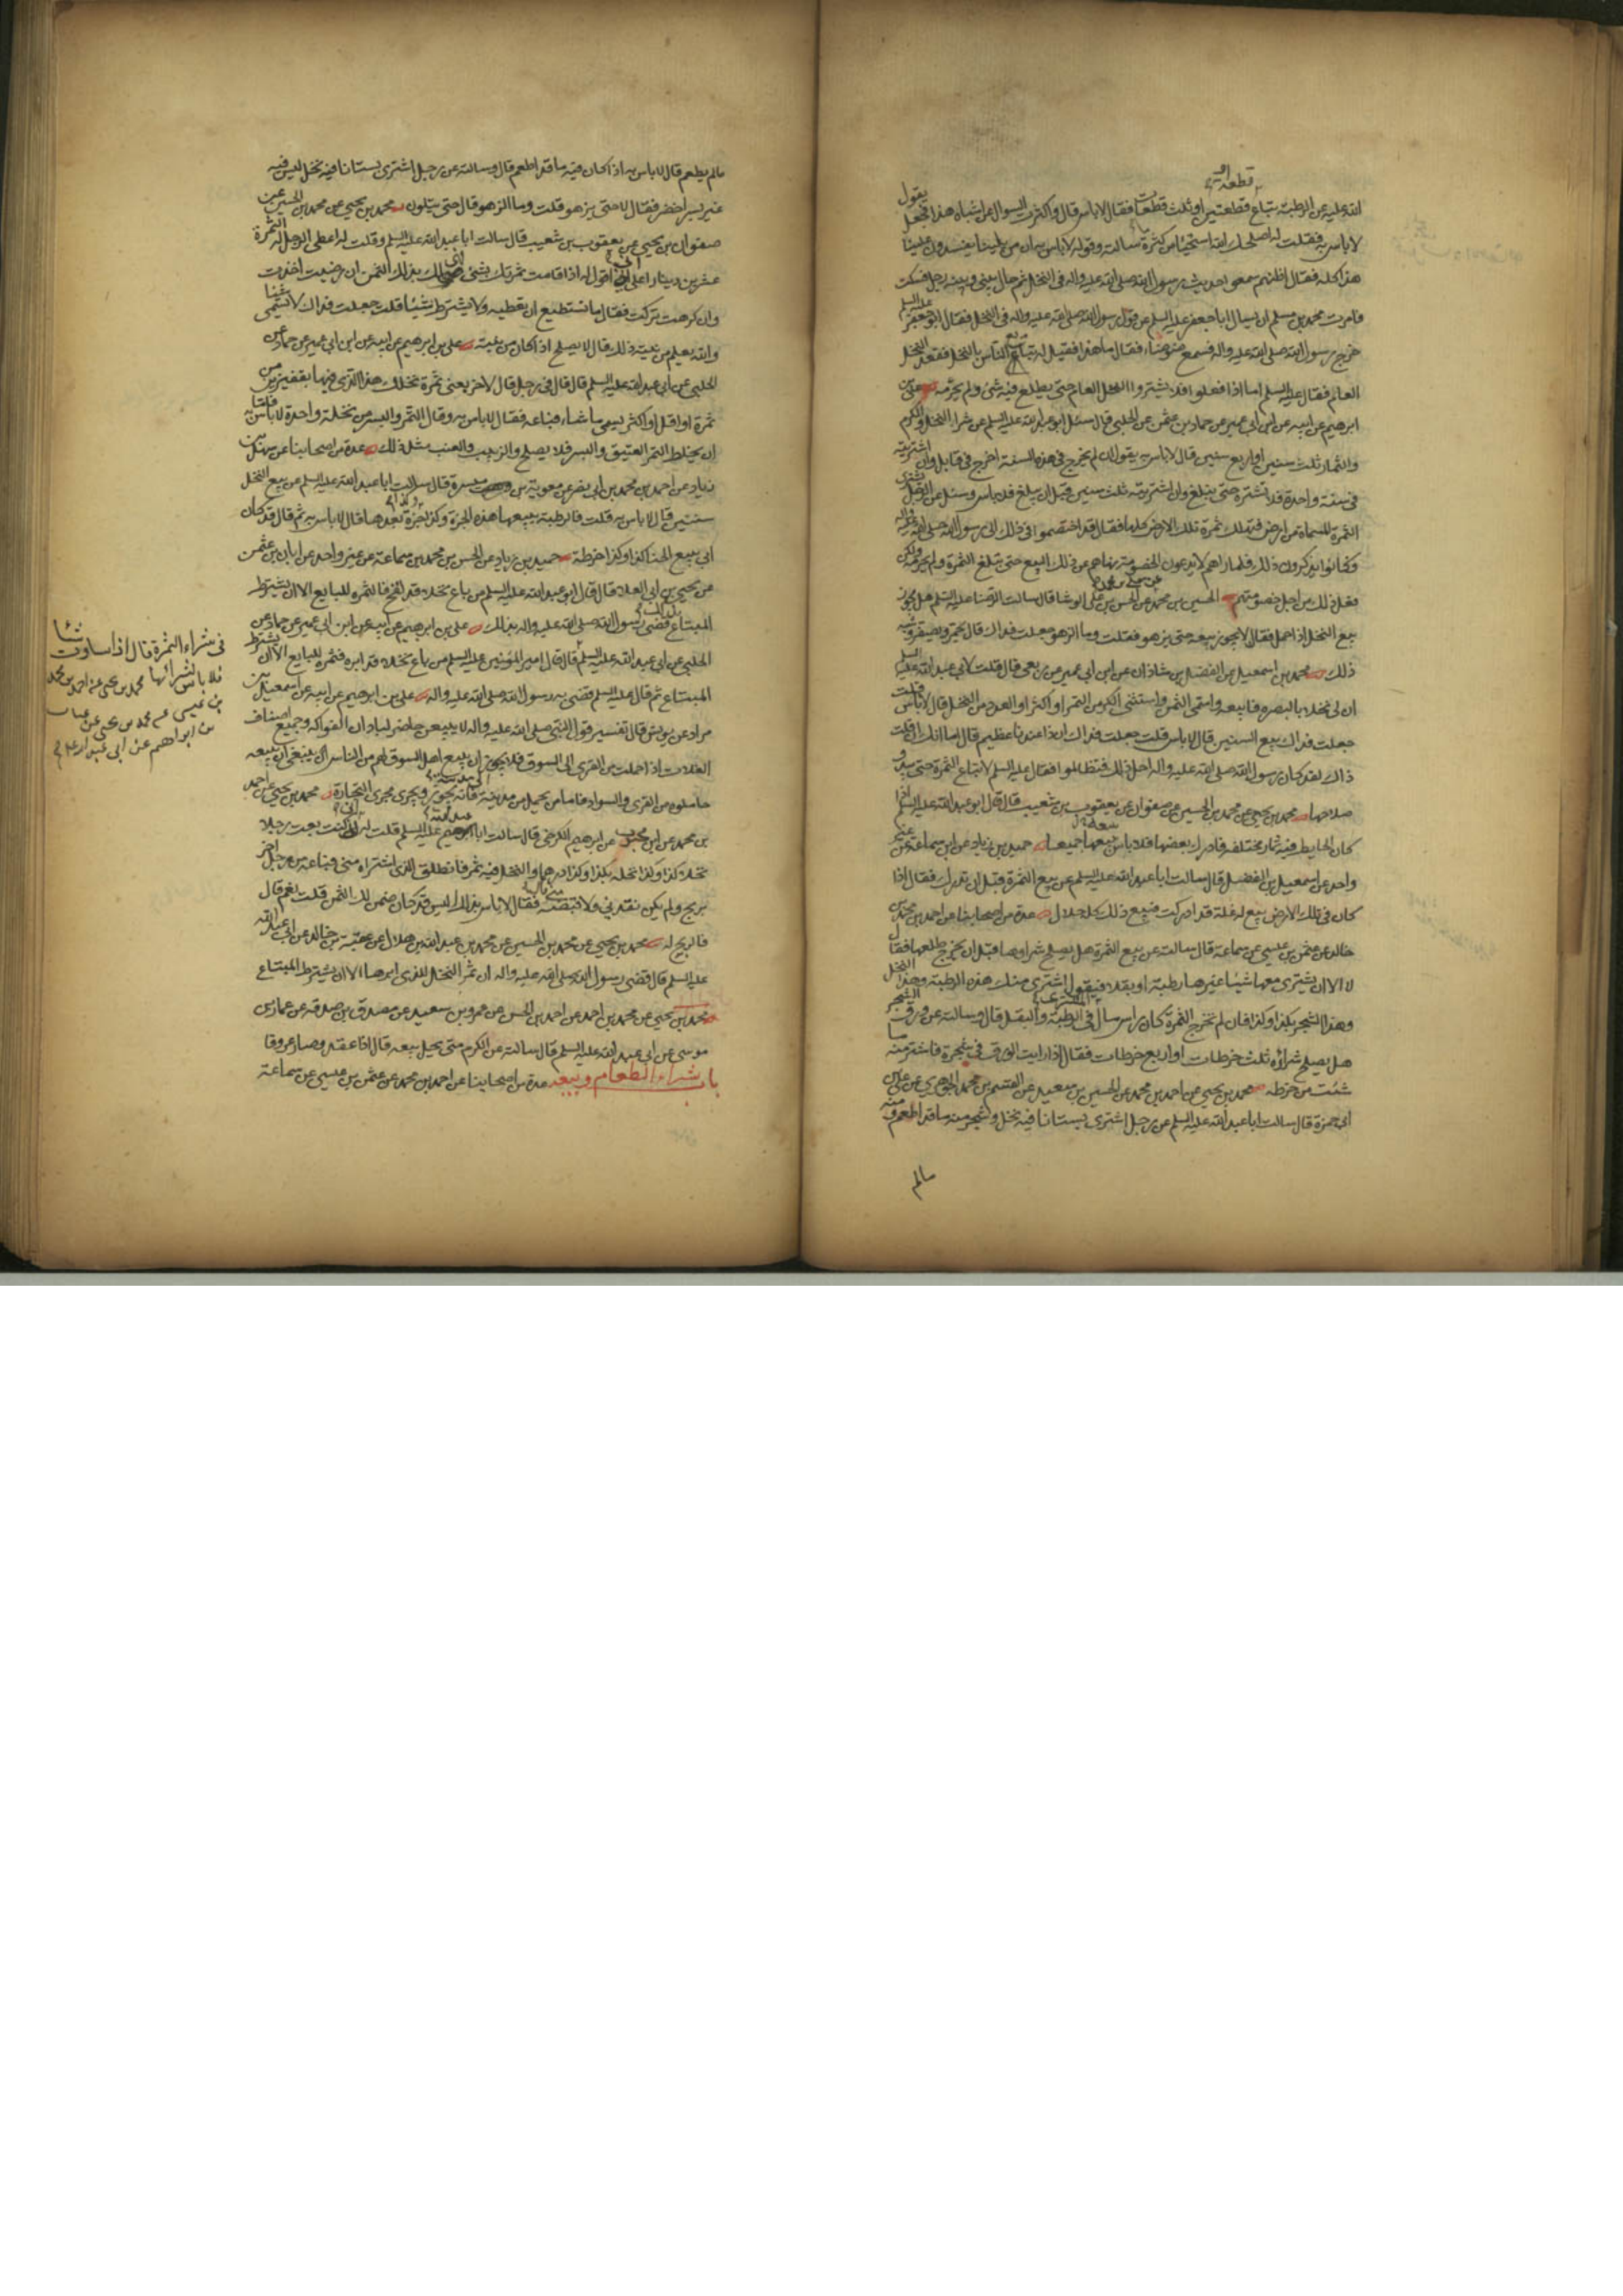 قطعة او
الله عليه عن الرطبة تباع قطعتين او ثلث قطعات فقال لا باس قال واكثرت السوال عن اشباه هذا فجعل يقول
لا باس به فقلت له اصلحك الله استحياء من كثرة ما سالته وقوله لا باس به ان من يلينا يفسدون علينا
هذا كله فقال اظنهم سمعوا حديث رسول الله صلى الله عليه واله في النخل ثم حال بيني وبينه رجل فسكت
فامرت محمد بن مسلم ان يسال ابا جعفر عليه السلم عن قول رسول الله صلى الله عليه واله في النخل فقال ابو جعفر عليه السلم
خرج رسول الله صلى الله عليه واله فسمع ضوضاء فقال ما هذا فقيل له تبايع الناس بالنخل فقعد النخل
العام فقال عليه السلم اما اذا فعلوا فلا يشتروا النخل العام حتى يطلع فيه شئ ولم يحرمه علي بن
ابرهيم عن ابيه عن ابن ابي عمير عن حماد بن عثمن عن الحلبي قال سئل ابو عبد الله عليه السلم عن شراء النخل والكرم
والثمار ثلث سنين او اربع سنين قال لا باس به يقول ان لم يخرج في هذه السنة اخرج في قابل وان اشتريته
في سنة واحدة فلا تشتره حتى يبلغ وان اشتريته ثلث سنين قبل ان يبلغ فلا باس وسئل عن الرجل يشتري
الثمرة المسماة من ارض فتهلك ثمرة تلك الارض كلها فقال قد اختصموا في ذلك الى رسول الله صلى الله عليه واله
وكانوا يذكرون ذلك فلما راهم لا يدعون الخصومة نهاهم عن ذلك البيع حتى تبلغ الثمرة ولم يحرمه ولكن
فعل ذلك من اجل خصومتهم الحسين بن محمد عن معلى بن محمد عن الحسن بن علي الوشا قال سالت الرضا عليه السلم هل يجوز
بيع النخل اذا حمل فقال لا يجوز بيعه حتى يزهو فقلت وما الزهو جعلت فداك قال يحمر ويصفر وشبه
ذلك محمد بن اسمعيل عن الفضل بن شاذان عن ابن ابي عمير عن ربعي قال قلت لابي عبد الله عليه السلم
ان لي نخلا بالبصره فابيعه واسمى الثمن واستثنى الكر من التمر او اكثر او العدد من النخل قال لا باس قلت
جعلت فداك بيع السنين قال لا باس قلت جعلت فداك ان ذا عندنا عظيم قال اما انك ان قلت
ذاك لقد كان رسول الله صلى الله عليه واله احل ذلك فتظالموا فقال عليه السلم لا تباع الثمرة حتى يبدو
صلاحها محمد بن يحيى عن محمد بن الحسين عن صفوان عن يعقوب بن شعيب قال قال ابو عبد الله عليه السلم اذا
كان الحايط فيه ثمار مختلفه فادرك بعضها فلا باس ببيعها جميعا حميد بن زياد عن ابن سماعة عن غير
واحد عن اسمعيل بن الفضل قال سالت ابا عبد الله عليه السلم عن بيع الثمرة قبل ان تدرك فقال اذا
كان في تلك الارض بيع له غلة قد ادركت فبيع ذلك كله حلال عدة من اصحابنا عن احمد بن محمد بن
خالد عن عثمن بن عيسى عن سماعة قال سالته عن بيع الثمرة هل يصلح شراوها قبل ان يخرج طلعها فقال
لا الا ان يشترى معها شيئا غيرها رطبة او بقلا فيقول اشترى منك هذه الرطبة وهذا النخل
وهذا الشجر بكذا وكذا فان لم تخرج الثمرة كان راس مال المشترى في الرطبة والبقل قال وسالته عن ورق الشجر
هل يصلح شراؤه ثلث خرطات او اربع خرطات فقال اذا رايت الورق في شجرة فاشتر منه ما
شئت من خرطه محمد بن يحيى عن احمد بن محمد عن الحسين بن سعيد عن القسم بن محمد الجوهري عن علي بن
ابي حمزة قال سالت ابا عبد الله عليه السلم عن رجل اشترى بستانا فيه نخل وشجر منه ما قد اطعم ومنه
مالم
مالم يطعم قال لا باس به اذا كان فيه ما قد اطعم قال وسالته عن رجل اشترى بستانا فيه نخل ليس فيه
غير بسر اخضر فقال لا حتى يزهو قلت وما الزهو قال حتى يتلون محمد بن يحيى عن محمد بن الحسين عن
صفوان بن يحيى عن يعقوب بن شعيب قال سالت ابا عبد الله عليه السلم وقلت له اعطى الرجل له الثمرة
عشرين دينارا على اني اقول له اذا قامت ثمرتك بشئ فهى لى بذلك الثمن ان رضيت اخذت
وان كرهت تركت فقال اما تستطيع ان تعطيه ولا تشترط شيئا قلت جعلت فداك لا يسمى شيئا
والله يعلم من نيته ذلك قال لا يصلح اذا كان من نيته علي بن ابرهيم عن ابيه عن ابن ابي عمير عن حماد عن
الحلبي عن ابي عبد الله عليه السلم قال قال في رجل قال لاخر بعنى ثمرة نخلك هذا الذى فيها بقفيزين من
ثمرة او اقل او اكثر يسمى ما شاء فباعه فقال لا باس به وقال التمر والبسر من نخلة واحدة لا باس به فاما
ان يخلط التمر العتيق والبسر فلا يصلح والزبيب والعنب مثل ذلك عدة من اصحابنا عن سهل بن
زياد عن احمد بن محمد بن ابي نصر عن معوية بن ميسرة قال سالت ابا عبد الله عليه السلم عن بيع النخل
سنتين قال لا باس به قلت فالرطبة يبيعها هذه الجزة وكذا جزة بعدها قال لا باس به ثم قال قد كان
ابي يبيع الحنا كذا وكذا خرطة حميد بن زياد عن الحسن بن محمد بن سماعة عن غير واحد عن ابان بن عثمن
عن يحيى بن ابي العلا قال قال ابو عبد الله عليه السلم من باع نخلا قد لقح فالثمره للبايع الا ان يشترط
المبتاع قضى رسول الله صلى الله عليه واله بذلك علي بن ابرهيم عن ابيه عن ابن ابي عمير عن حماد عن
الحلبي عن ابي عبد الله عليه السلم قال قال امير المؤمنين عليه السلم من باع نخلا قد ابره فثمره للبايع الا ان يشترط
المبتاع ثم قال عليه السلم قضى به رسول الله صلى الله عليه واله علي بن ابرهيم عن ابيه عن اسمعيل بن
مرار عن يونس قال تفسير قول النبي صلى الله عليه واله لا يبيعن حاضر لباد ان الفواكه وجميع اصناف
الغلات اذا حملت من القرى الى السوق فلا يجوز ان يبيع اهل السوق لهم من الناس بل ينبغي ان يبيعه
حاملوه من القرى والسواد فاما من يحمل من مدينة الى مدينة فانه يجوز ويجرى مجرى التجارة محمد بن يحيى عن احمد
بن محمد عن ابن محبوب عن ابرهيم الكرخي قال سالت ابا عبد الله عليه السلم قلت له انى كنت بعت رجلا
نخلا كذا وكذا نخله بكذا وكذا درهما والنخل فيه ثمر فانطلق الذى اشتراه منى فباعه من رجل اخر
بربح ولم يكن نقدنى ولا قبضه منى قال فقال لا باس بذلك اليس قد كان ضمن لك الثمن قلت نعم قال
فالربح له محمد بن يحيى عن محمد بن الحسين عن محمد بن عبد الله بن هلال عن عقبة بن خالد عن ابي عبد الله
عليه السلم قال قضى رسول الله صلى الله عليه واله ان ثمر النخل للذى ابرها الا ان يشترط المبتاع
محمد بن يحيى عن محمد بن احمد عن احمد بن الحسن عن عمرو بن سعيد عن مصدق بن صدقه عن عمار بن
موسى عن ابى عبد الله عليه السلم قال سالته عن الكرم متى يحل بيعه قال اذا عقد وصار عروقا
باب شراء الطعام وبيعه عدة من اصحابنا عن احمد بن محمد عن عثمن بن عيسى عن سماعة
فى شراء الثمرة قال اذا ساوت شيئا
فلا باس بشرائها محمد بن يحيى عن احمد بن محمد
بن عيسى عن محمد بن يحيى عن غياث
بن ابراهيم عن ابى عبد الله